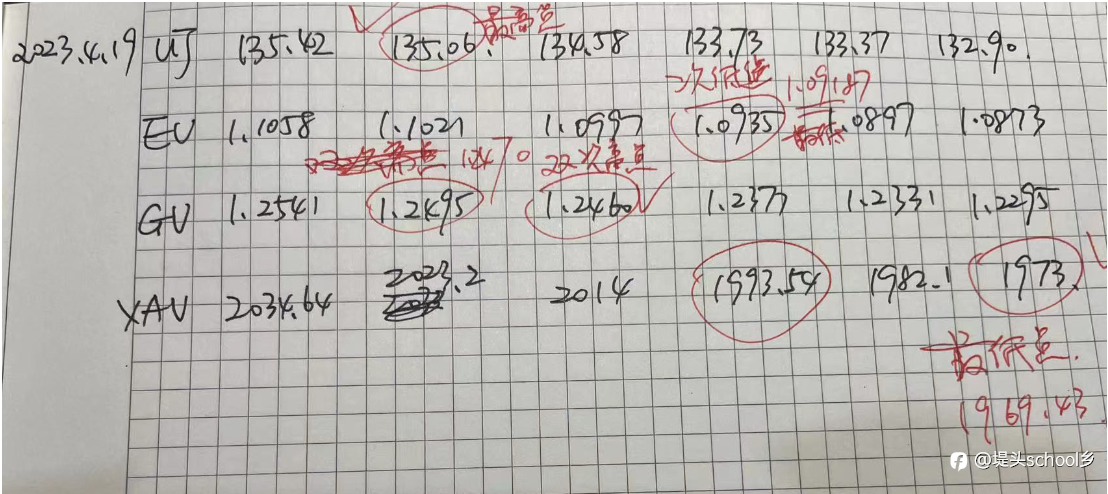 最高点
2023.4.19 UJ 135.42 135.06. 134.58 133.73 133.37 132.90.
二次低点 1.09187
EU 1.1058 1.1021 1.0997 1.0935 1.0897 1.0873
最低
1.247 0 二次高点
GU 1.2541 1.2495 1.2460 1.2377 1.2331 1.2295
2023.2
XAU 2034.64 2014 1993.54 1982.1 1973.
最低点.
1969.43
@堤头school乡